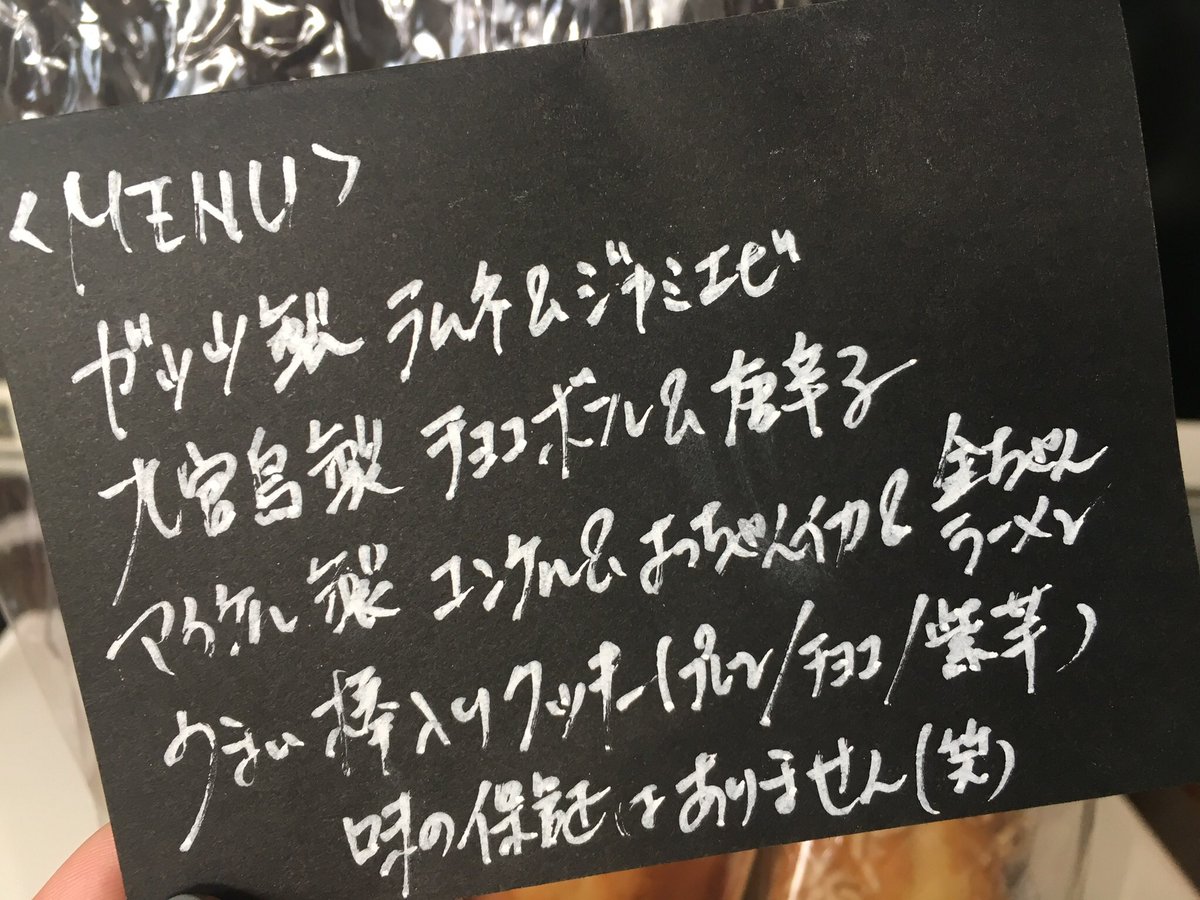 <MENU>
ガッツ製 ラムネ&ジャミエビ
九宮鳥製 チョコボール&唐辛子
マイケル製 ユンケル&よっちゃんイカ&金ちゃんラーメン
うまい棒入りクッキー(プレーン/チョコ/紫芋)
味の保証はありません(笑)